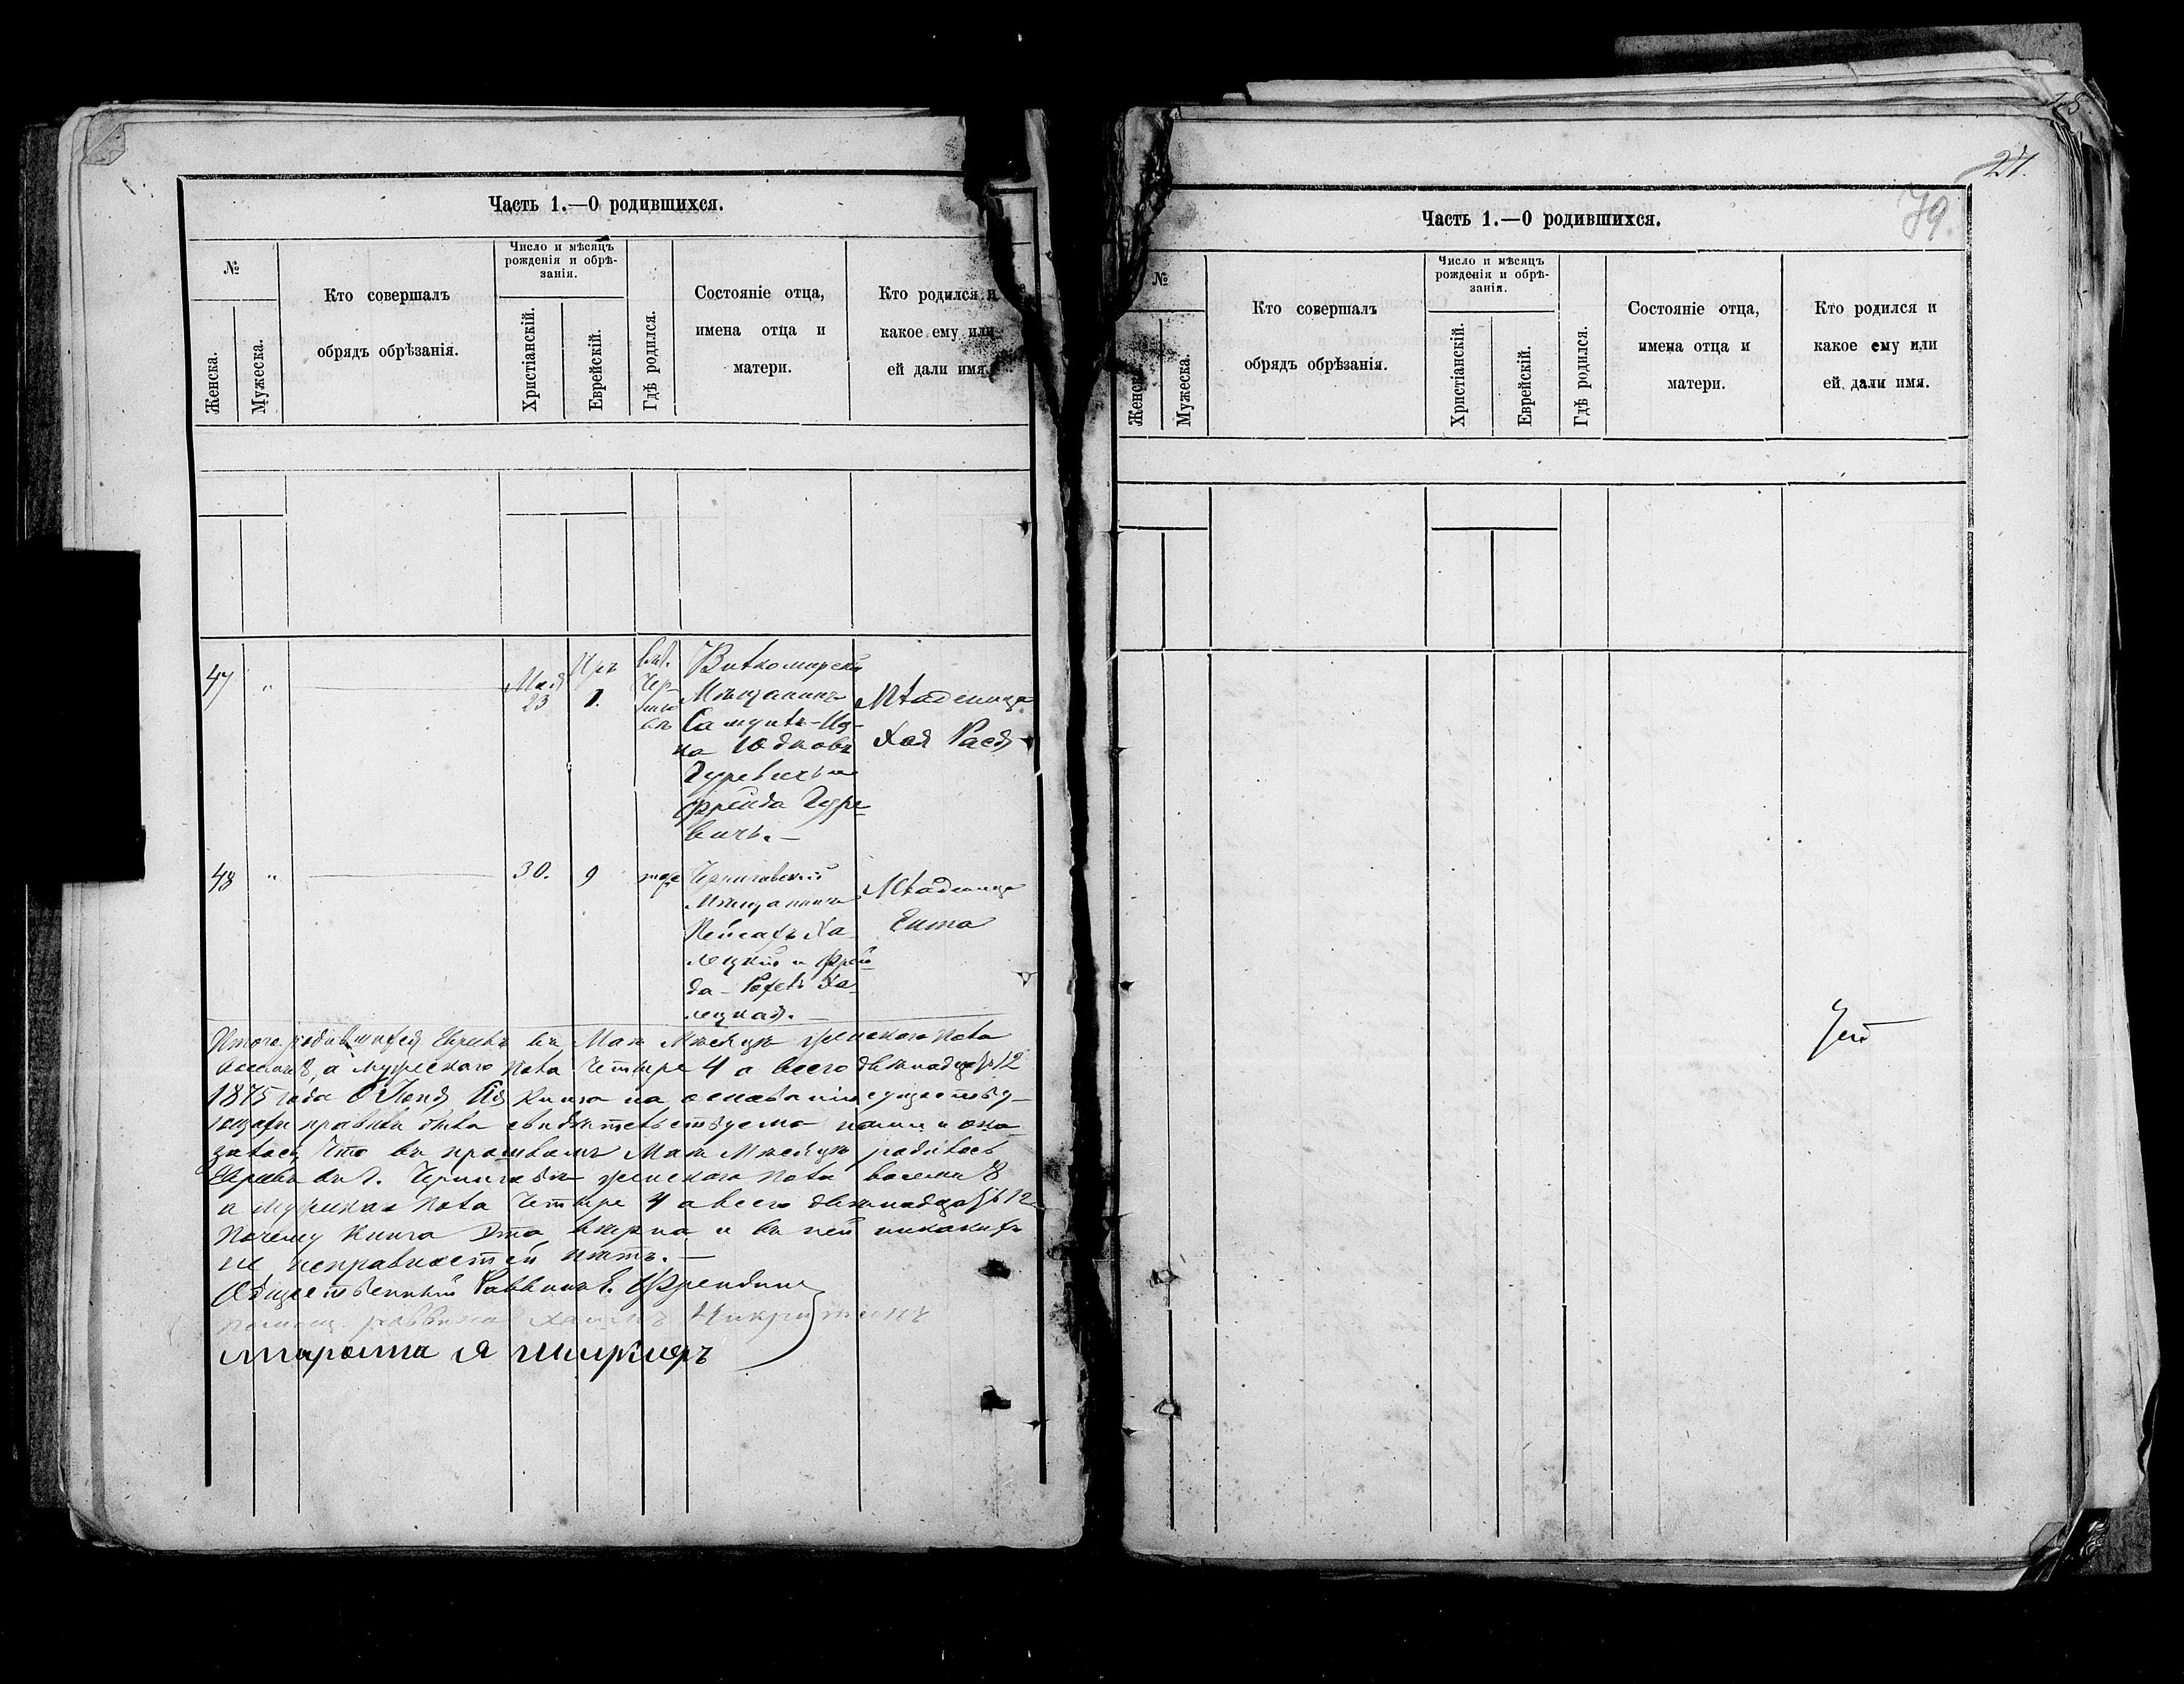 Часть 1.—О родившихся.
№
Женска.
Мужеска.
Кто совершалъ
обрядъ обрѣзанія.
Число и мѣсяцъ
рожденія и обрѣ-
занія.
Христіанскій.
Еврейскій.
Гдѣ родился.
Состояніе отца,
имена отца и
матери.
Кто родился и
какое ему или
ей дали имя.
47
"
Мая
23
1.
Вилкомирскій
Мѣщанинъ
Самуилъ-Иц-
ка Юдковъ
Гуревичъ и
Фрейда Гуре-
вичъ.—
Младеница
Хая Рася
48
"
30.
9
тоже
Черниговскій
Мѣщанинъ
Пейсахъ Ха-
лецкій и Фрей-
да-Рохель Ха-
лецкая.—
Младеница
Ента
Итого родившихся Евреевъ въ Маѣ Мѣсяцѣ женскаго пола
восемь 8, а мужескаго пола Четыре 4 а всего двѣнадцать 12
1875 года Іюня Сія Книга на основаніи существу-
ющихъ правилъ была свидѣтельствуема нами и ока-
залось Что въ прошломъ Маѣ Мѣсяцѣ родилось
Евреевъ въ г. Черниговѣ женскаго пола восемь 8
а мужскаго пола Четыре 4 а всего двѣнадцать 12
Почему Книга Эта вѣрна и въ ней никакихъ
не исправностей нѣтъ.—
Общественный Раввинъ Е. Фрейдинъ
помощ. раввина Хаимъ
староста Я
27.
79.
Часть 1.—О родившихся.
№
Женска.
Мужеска.
Кто совершалъ
обрядъ обрѣзанія.
Число и мѣсяцъ
рожденія и обрѣ-
занія.
Христіанскій.
Еврейскій.
Гдѣ родился.
Состояніе отца,
имена отца и
матери.
Кто родился и
какое ему или
ей дали имя.